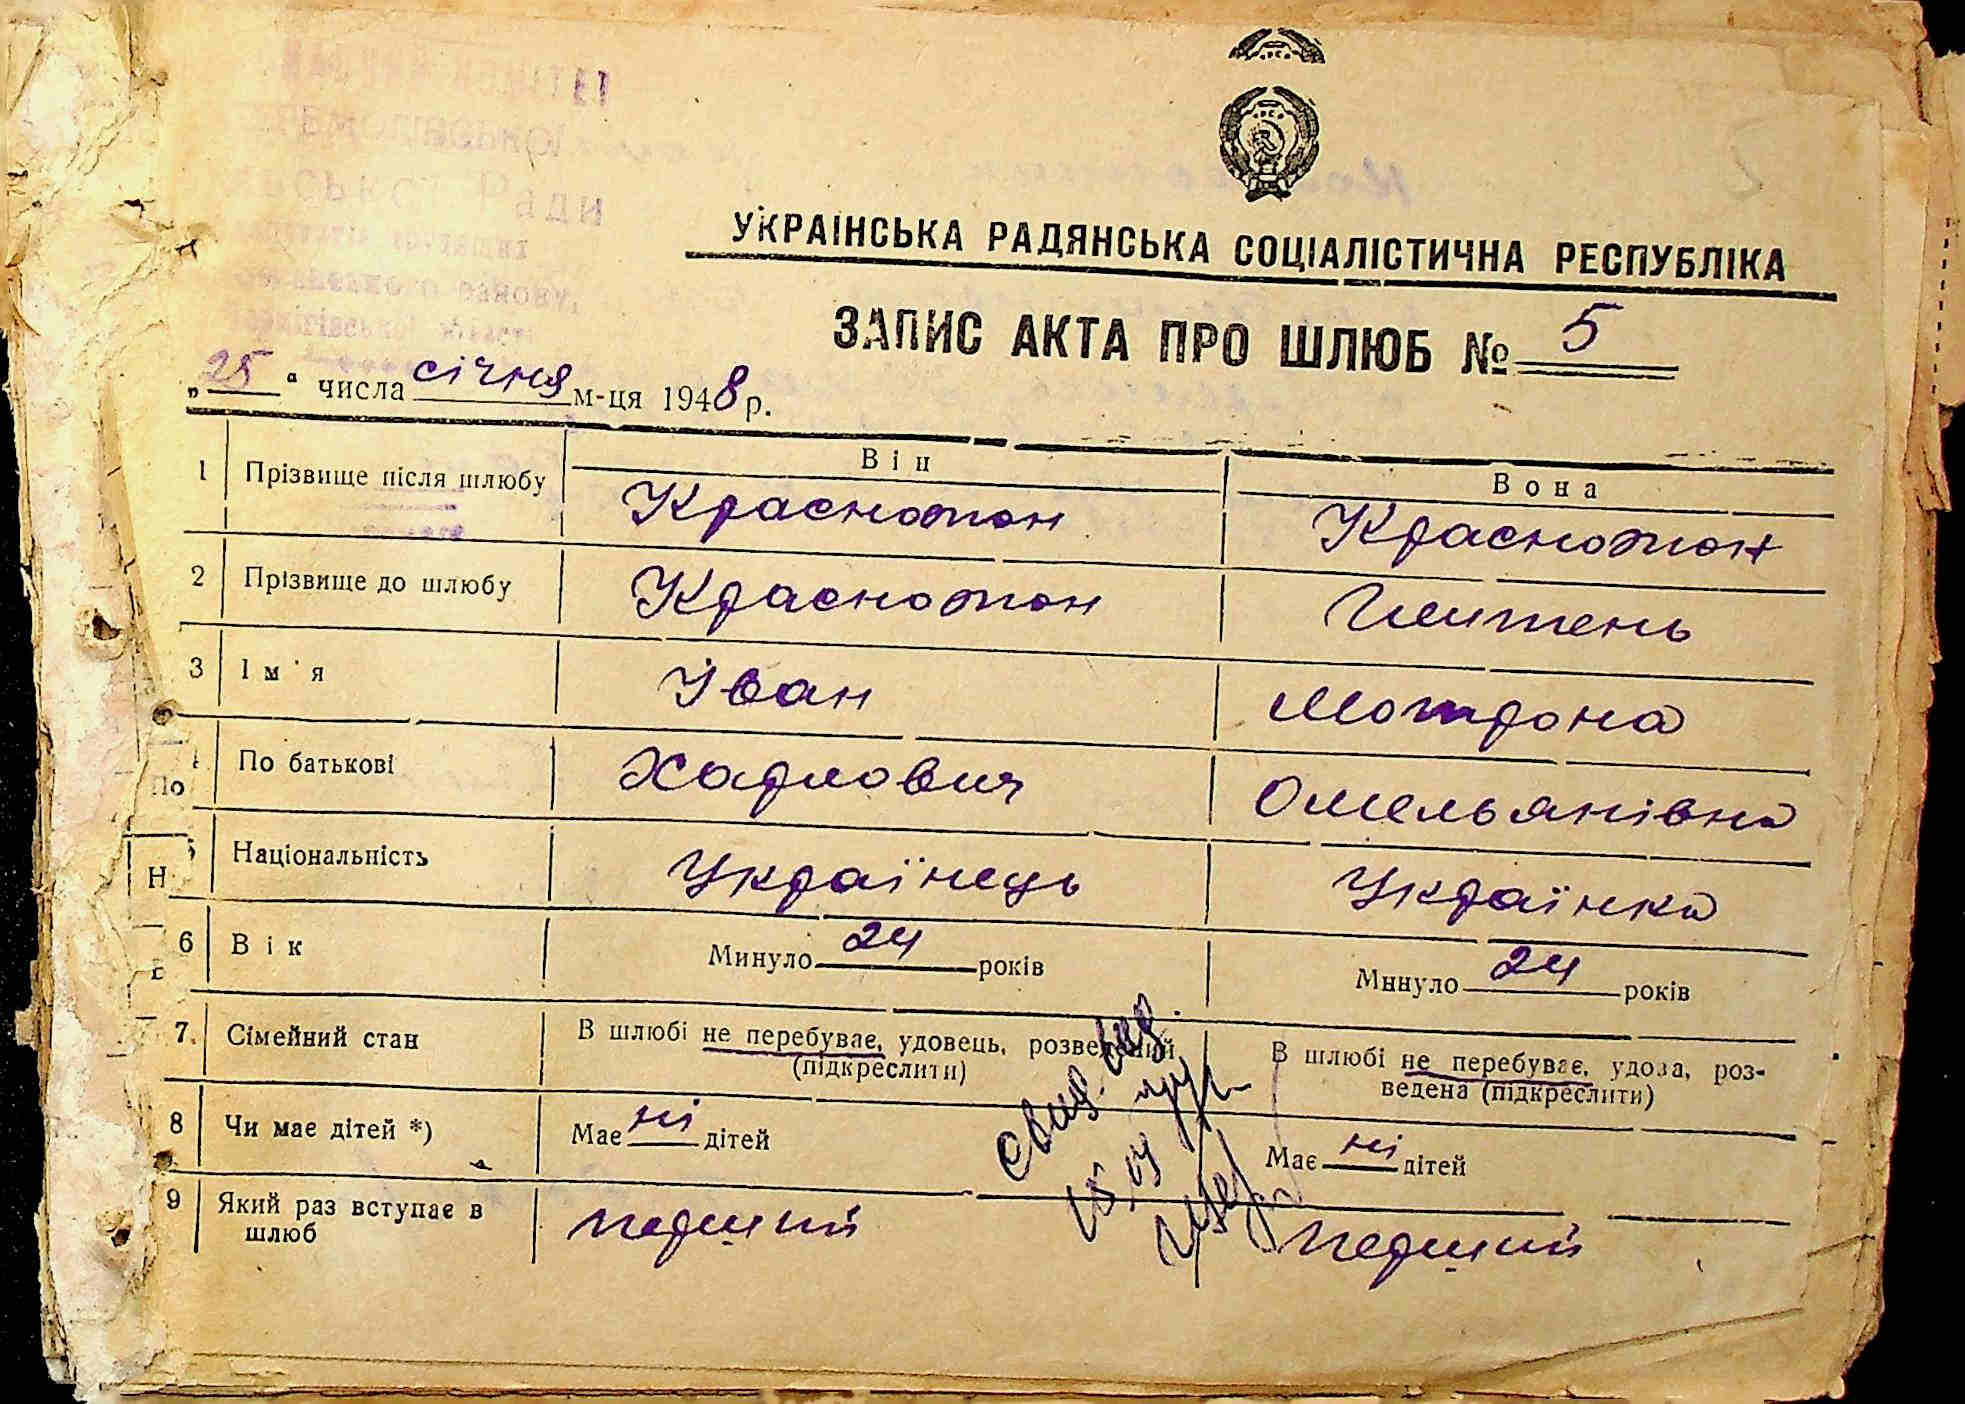 УКРАЇНСЬКА РАДЯНСЬКА СОЦІАЛІСТИЧНА РЕСПУБЛІКА
ЗАПИС АКТА ПРО ШЛЮБ № 5
„25“ числа січня м-ця 1948 р.
Він
Вона
1 Прізвище після шлюбу Красножон Красножон
2 Прізвище до шлюбу Красножон
3 Ім'я Іван Мотрона
По батькові Харлович Омельянівна
Національність Українець Українка
6 Вік Минуло 24 років Минуло 24 років
7. Сімейний стан В шлюбі не перебуває, удовець, розведений (підкреслити) В шлюбі не перебуває, удова, роз-
ведена (підкреслити)
8 Чи має дітей *) Має ні дітей Має ні дітей
9 Який раз вступає в перший перший
шлюб